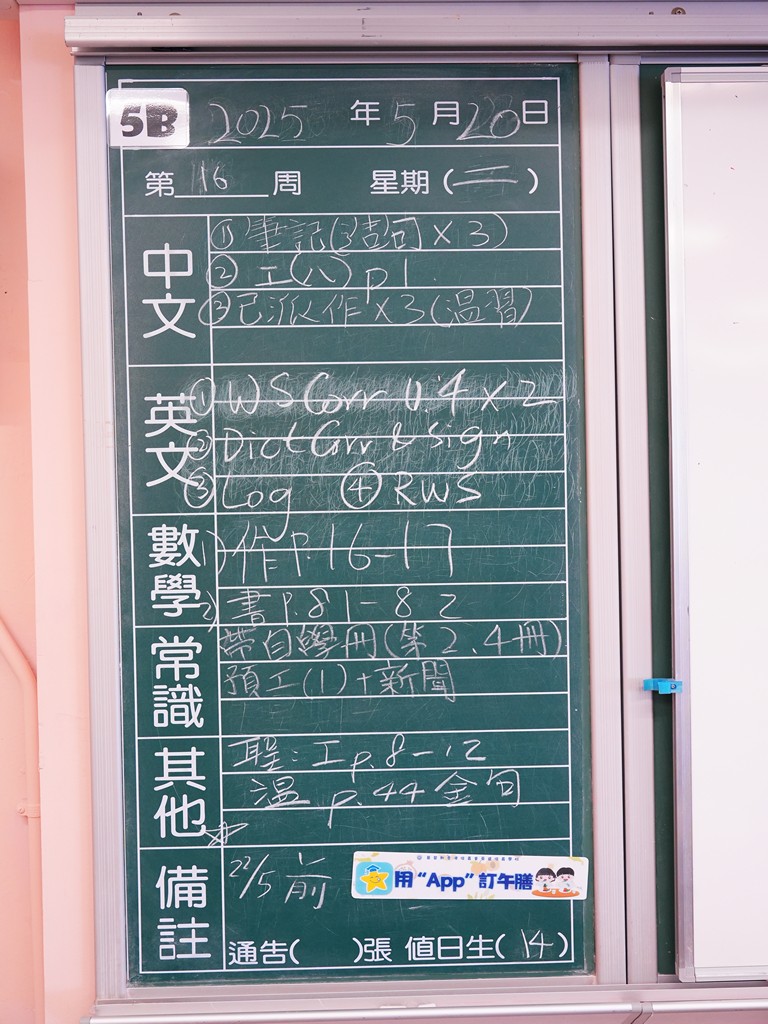 5B 2025 年 5 月 20 日
第 16 周 星期 (二)
中文
① 筆記(造句 × 3)
② 工(八) p 1
③ 已派作 × 3 (温習)
英文
① WS Corr U.4 × 2
② Dict Corr & Sign
③ Log ④ RWS
數學
1) 作 P.16-17
2) 書 P.81-82
常識
帶自學冊(第2、4冊)
預工(1) + 新聞
其他
聖：工 p.8-12
温 p.44 金句
備註
22/5 前
用 “App” 訂午膳
通告( )張 值日生( 14 )